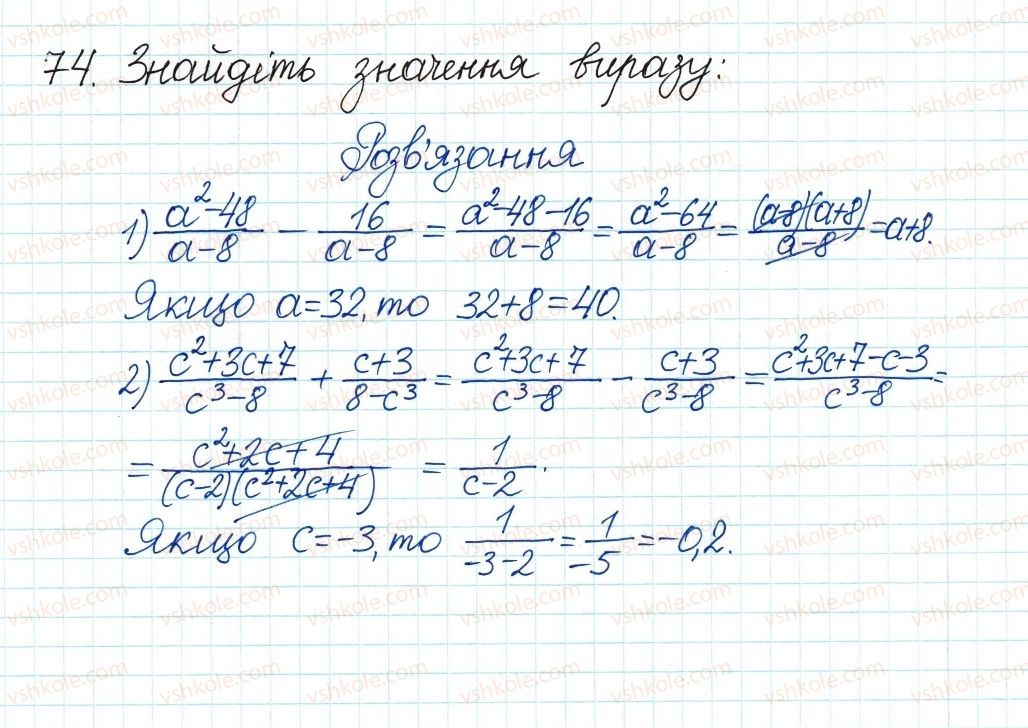 74. Знайдіть значення виразу:
Розв'язання
1) (a²-48)/(a-8) - 16/(a-8) = (a²-48-16)/(a-8) = (a²-64)/(a-8) = ((a-8)(a+8))/(a-8) = a+8.
Якщо a=32, то 32+8=40.
2) (c²+3c+7)/(c³-8) + (c+3)/(8-c³) = (c²+3c+7)/(c³-8) - (c+3)/(c³-8) = (c²+3c+7-c-3)/(c³-8) =
= (c²+2c+4)/((c-2)(c²+2c+4)) = 1/(c-2).
Якщо c=-3, то 1/(-3-2) = 1/(-5) = -0,2.